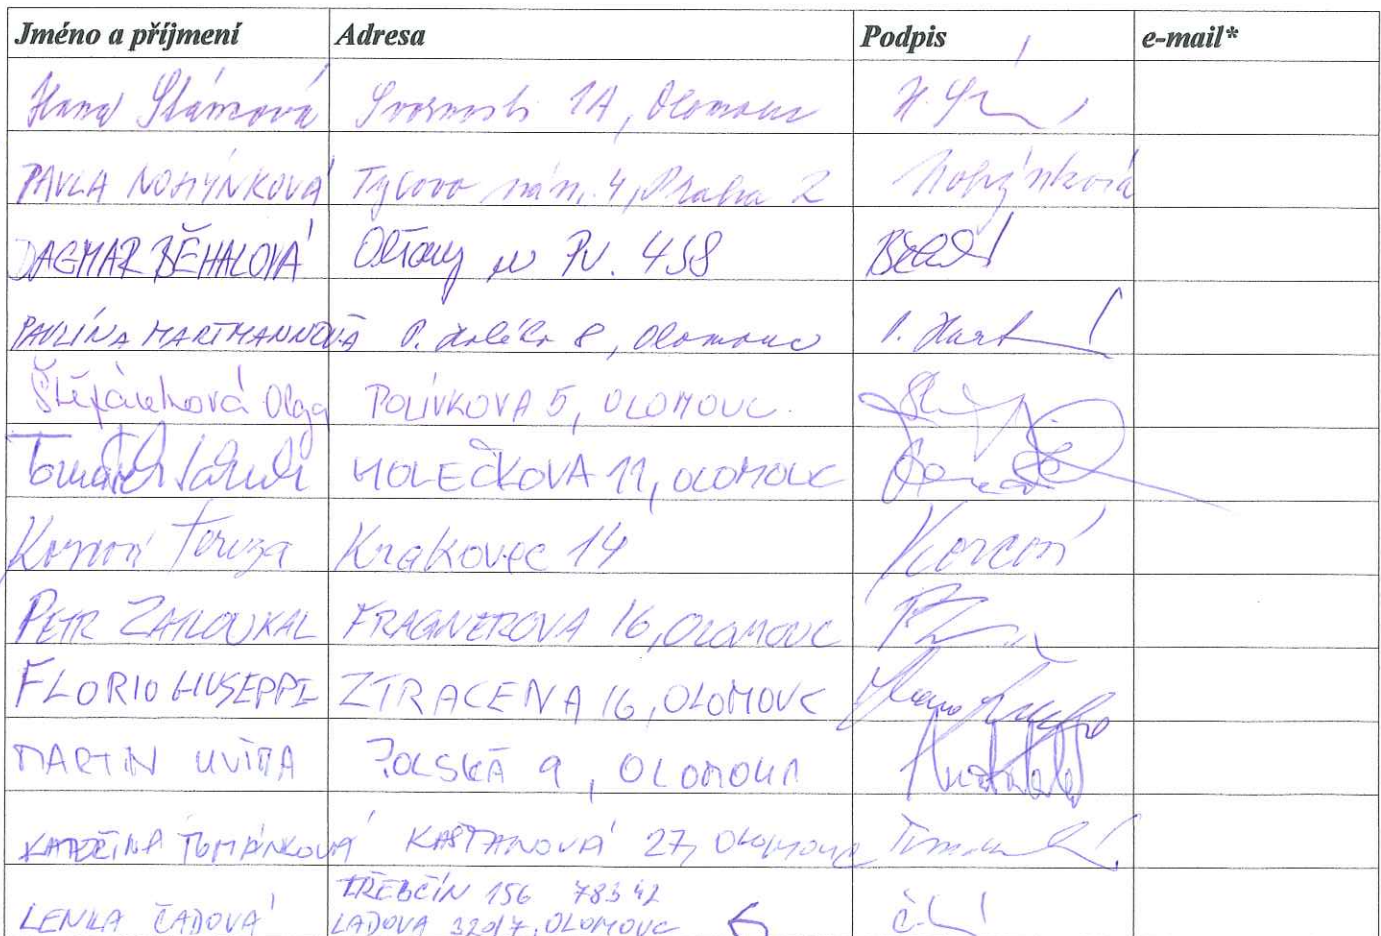 Jméno a příjmení Adresa Podpis e-mail*
Hana Slámová Svornosti 1A, Olomouc H. Sl
PAVLA NOHÝNKOVÁ Tylovo nám. 4, Praha 2 Nohýnková
DAGMAR BĚHALOVÁ Olšany u PV. 458
PAVLÍNA HARTMANNOVÁ 8, Olomouc P. Hart
Štěpánková Olga POLÍVKOVA 5, OLOMOUC
Tomáš HOLEČKOVA 11, OLOMOUC
Tereza Krakovec 14
PETR ZATLOUKAL FRAGNEROVA 16, OLOMOUC
FLORIO GIUSEPPE ZTRACENA 16, OLOMOUC
MARTIN POLSKÁ 9, OLOMOUC
KATEŘINA TOMÁNKOVÁ KAŠTANOVÁ 27, OLOMOUC
TŘEBČÍN 156 78342
LENKA ČADOVÁ LADOVA 320/7, OLOMOUC